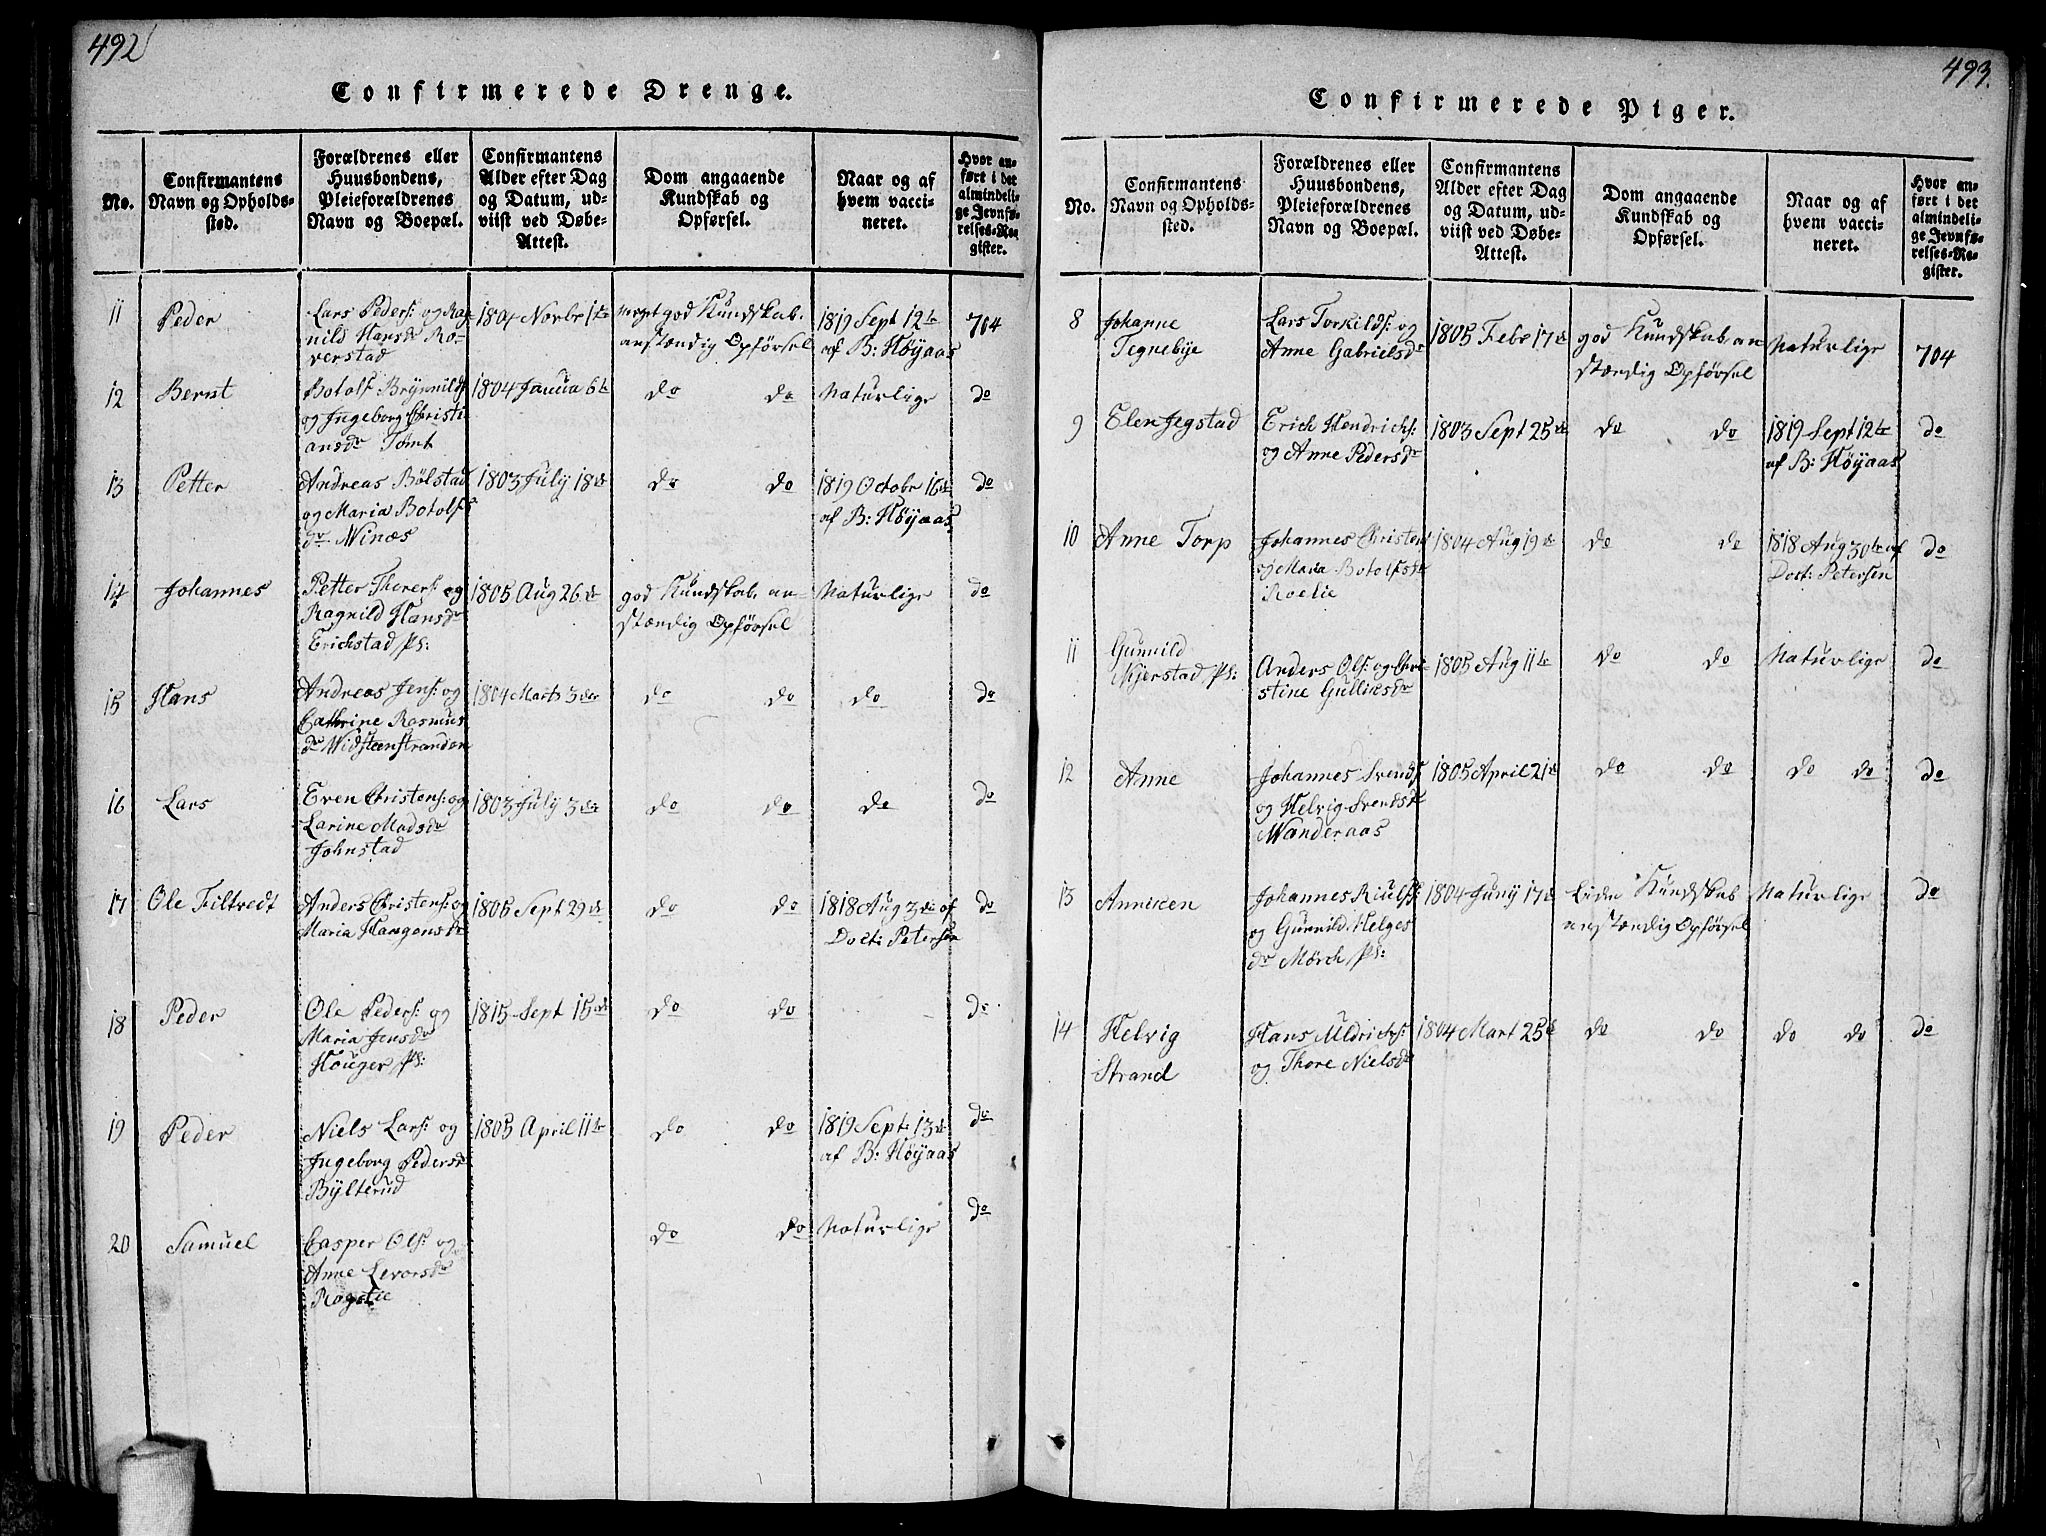 492
Confirmerede Drenge.
No.
Confirmantens
Navn og Opholds-
sted.
Forældrenes eller
Huusbondens,
Pleieforældrenes
Navn og Boepæl.
Confirmantens
Alder efter Dag
og Datum, ud-
viist ved Døbe-
Attest.
Dom angaaende
Kundskab og
Opførsel.
Naar og af
hvem vacci-
neret.
Hvor an-
ført i det
almindeli-
ge Jevnfø-
relses-Re-
gister.
11 Peder
Lars Peders: og Rag
nild Hansdr Ro-
verstad
1804 Novbr 1te
meget god Kundskab.
anstændig Opførsel
1819 Sept 12te
af B: Höyaas
704
12 Bernt
Botolf Brynnilds
og Ingeborg Christi
ansdr Tomt
1804 Janua 6te
do do
Naturlige
do
13 Petter
Andreas Bölstad
og Maria Botolfs
dr Winæs
1803 July 18de
do do
1819 Octobr 16de
af B: Höyaas
do
14 Johannes
Petter Thorers: og
Ragnild Hansdr
Erichstad Ps:
1805 Aug 26de
god Kundskab. an-
stændig Opförsel
Naturlige
do
15 Hans
Andreas Jens: og
Cathrine Rasmus
dr Widsteenstranden
1804 Marts 3der
do do
do
do
16 Lars
Even Christens: og
Larine Madsdr
Johnstad
1803 July 3de
do do
do
do
17 Ole Filtvedt
Anders Christens: og
Maria Haagensdr
1805 Sept 29de
do do
1818 Aug 3die af
Doct: Petersen
do
18 Peder
Ole Peders: og
Maria Jensdr
Houger Ps:
1815 Sept 15de
do do
do
19 Peder
Niels Lars: og
Ingeborg Pedersdr
Bÿlterud
1805 April 11te
do do
1819 Sept: 13de
af B: Höyaas
do
20 Samuel
Casper Ols: og
Anne Levorsdr
Rogstie
do do
Naturlige
do
493.
Confirmerede Piger.
No.
Confirmantens
Navn og Opholds-
sted.
Forældrenes eller
Huusbondens,
Pleieforældrenes
Navn og Boepæl.
Confirmantens
Alder efter Dag
og Datum, ud-
viist ved Døbe-
Attest.
Dom angaaende
Kundskab og
Opførsel.
Naar og af
hvem vacci-
neret.
Hvor an-
ført i det
almindeli-
ge Jevnfø-
relses-Re-
gister.
8 Johanne
Tegnebÿe
Lars Torkilds: og
Anne Gabrielsdr
1805 Febr 17de
god Kundskab. an
stændig Opförsel
Naturlige
704
9 Elen Jegstad
Erich Hendrichs:
og Anne Pedersdr
1803 Sept 25de
do do
1819 Sept 12te
af B: Höyaas
do
10 Anne Torp
Johannes Christens
og Maria Botolfsdr
Roelie
1804 Aug 19de
do do
1818 Aug 30te af
Doct: Petersen
do
11 Gunnild
Kjerstad Ps:
Anders Ols: og Chri
stine Gulliksdr
1805 Aug 11te
do do
Naturlige
do
12 Anne
Johannes Svends
og Helvig Svendsdr
Wanderaas
1805 April 21de
do do
do do
do
13 Anniken
Johannes Riulfs:
og Gunnild Helges
dr Mörch Ps:
1804 Juny 17de
Liden Kundskab
anstændig Opförsel
Naturlige
do
14 Helvig
Strand
Hans Uldrichs:
og Thore Nielsdr
1804 Mart 25de
do do
do do
do